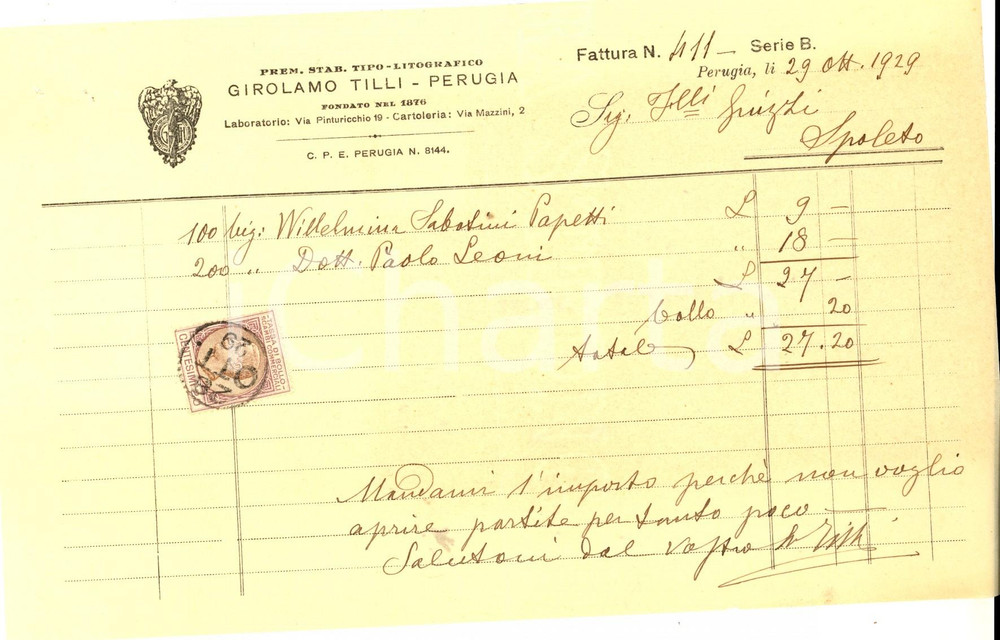 PREM. STAB. TIPO-LITOGRAFICO
GIROLAMO TILLI - PERUGIA
FONDATO NEL 1876
Laboratorio: Via Pinturicchio 19 - Cartoleria: Via Mazzini, 2
C. P. E. PERUGIA N. 8144.
Fattura N. 411 - Serie B.
Perugia, li 29 Ott. 1929
Sig. Flli
Spoleto
100 big: Willelmina Sabatini Papetti L 9 —
200 „ Dott. Paolo Leoni „ 18 —
L 27 —
bollo „ 20
total L 27.20
CENTESIMI
Mandami l'importo perchè non voglio
aprire partite per tanto poco
Salutoni dal vostro Tilli
iCharta